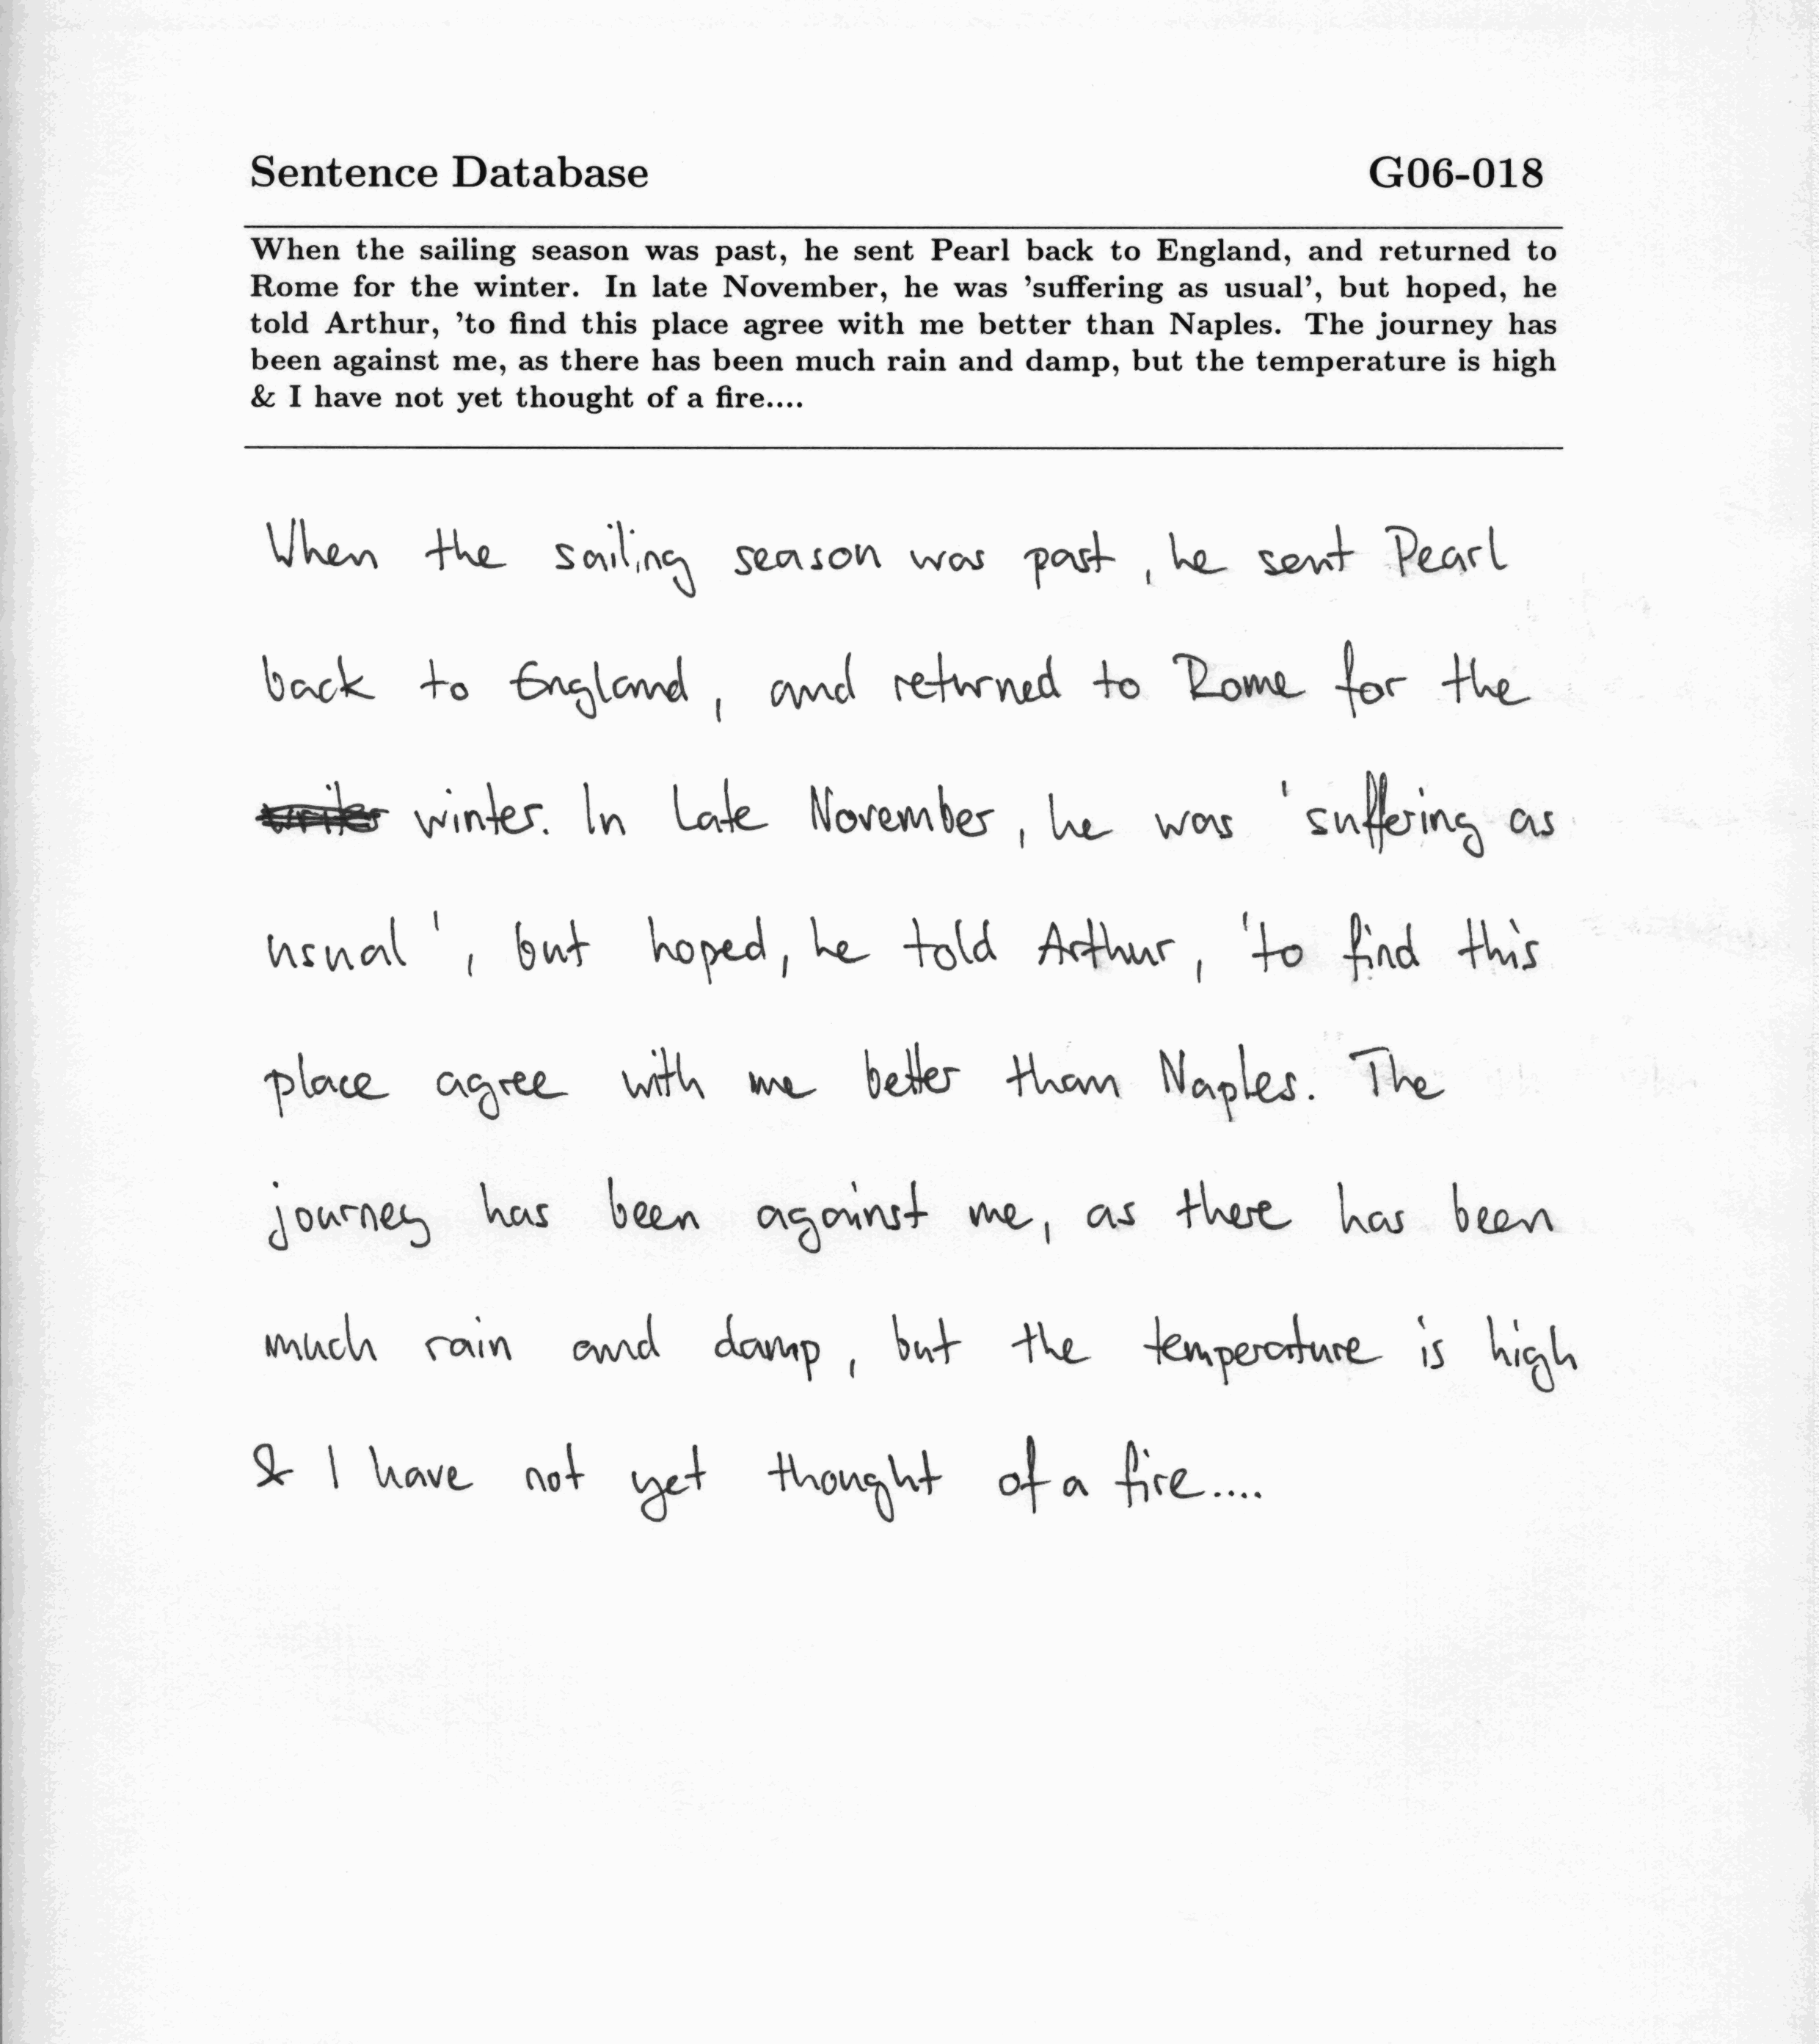 Sentence Database G06-018
When the sailing season was past, he sent Pearl back to England, and returned to
Rome for the winter. In late November, he was 'suffering as usual', but hoped, he
told Arthur, 'to find this place agree with me better than Naples. The journey has
been against me, as there has been much rain and damp, but the temperature is high
& I have not yet thought of a fire....
When the sailing season was past, he sent Pearl
back to England, and returned to Rome for the
winter. In late November, he was 'suffering as
usual', but hoped, he told Arthur, 'to find this
place agree with me better than Naples. The
journey has been against me, as there has been
much rain and damp, but the temperature is high
& I have not yet thought of a fire....